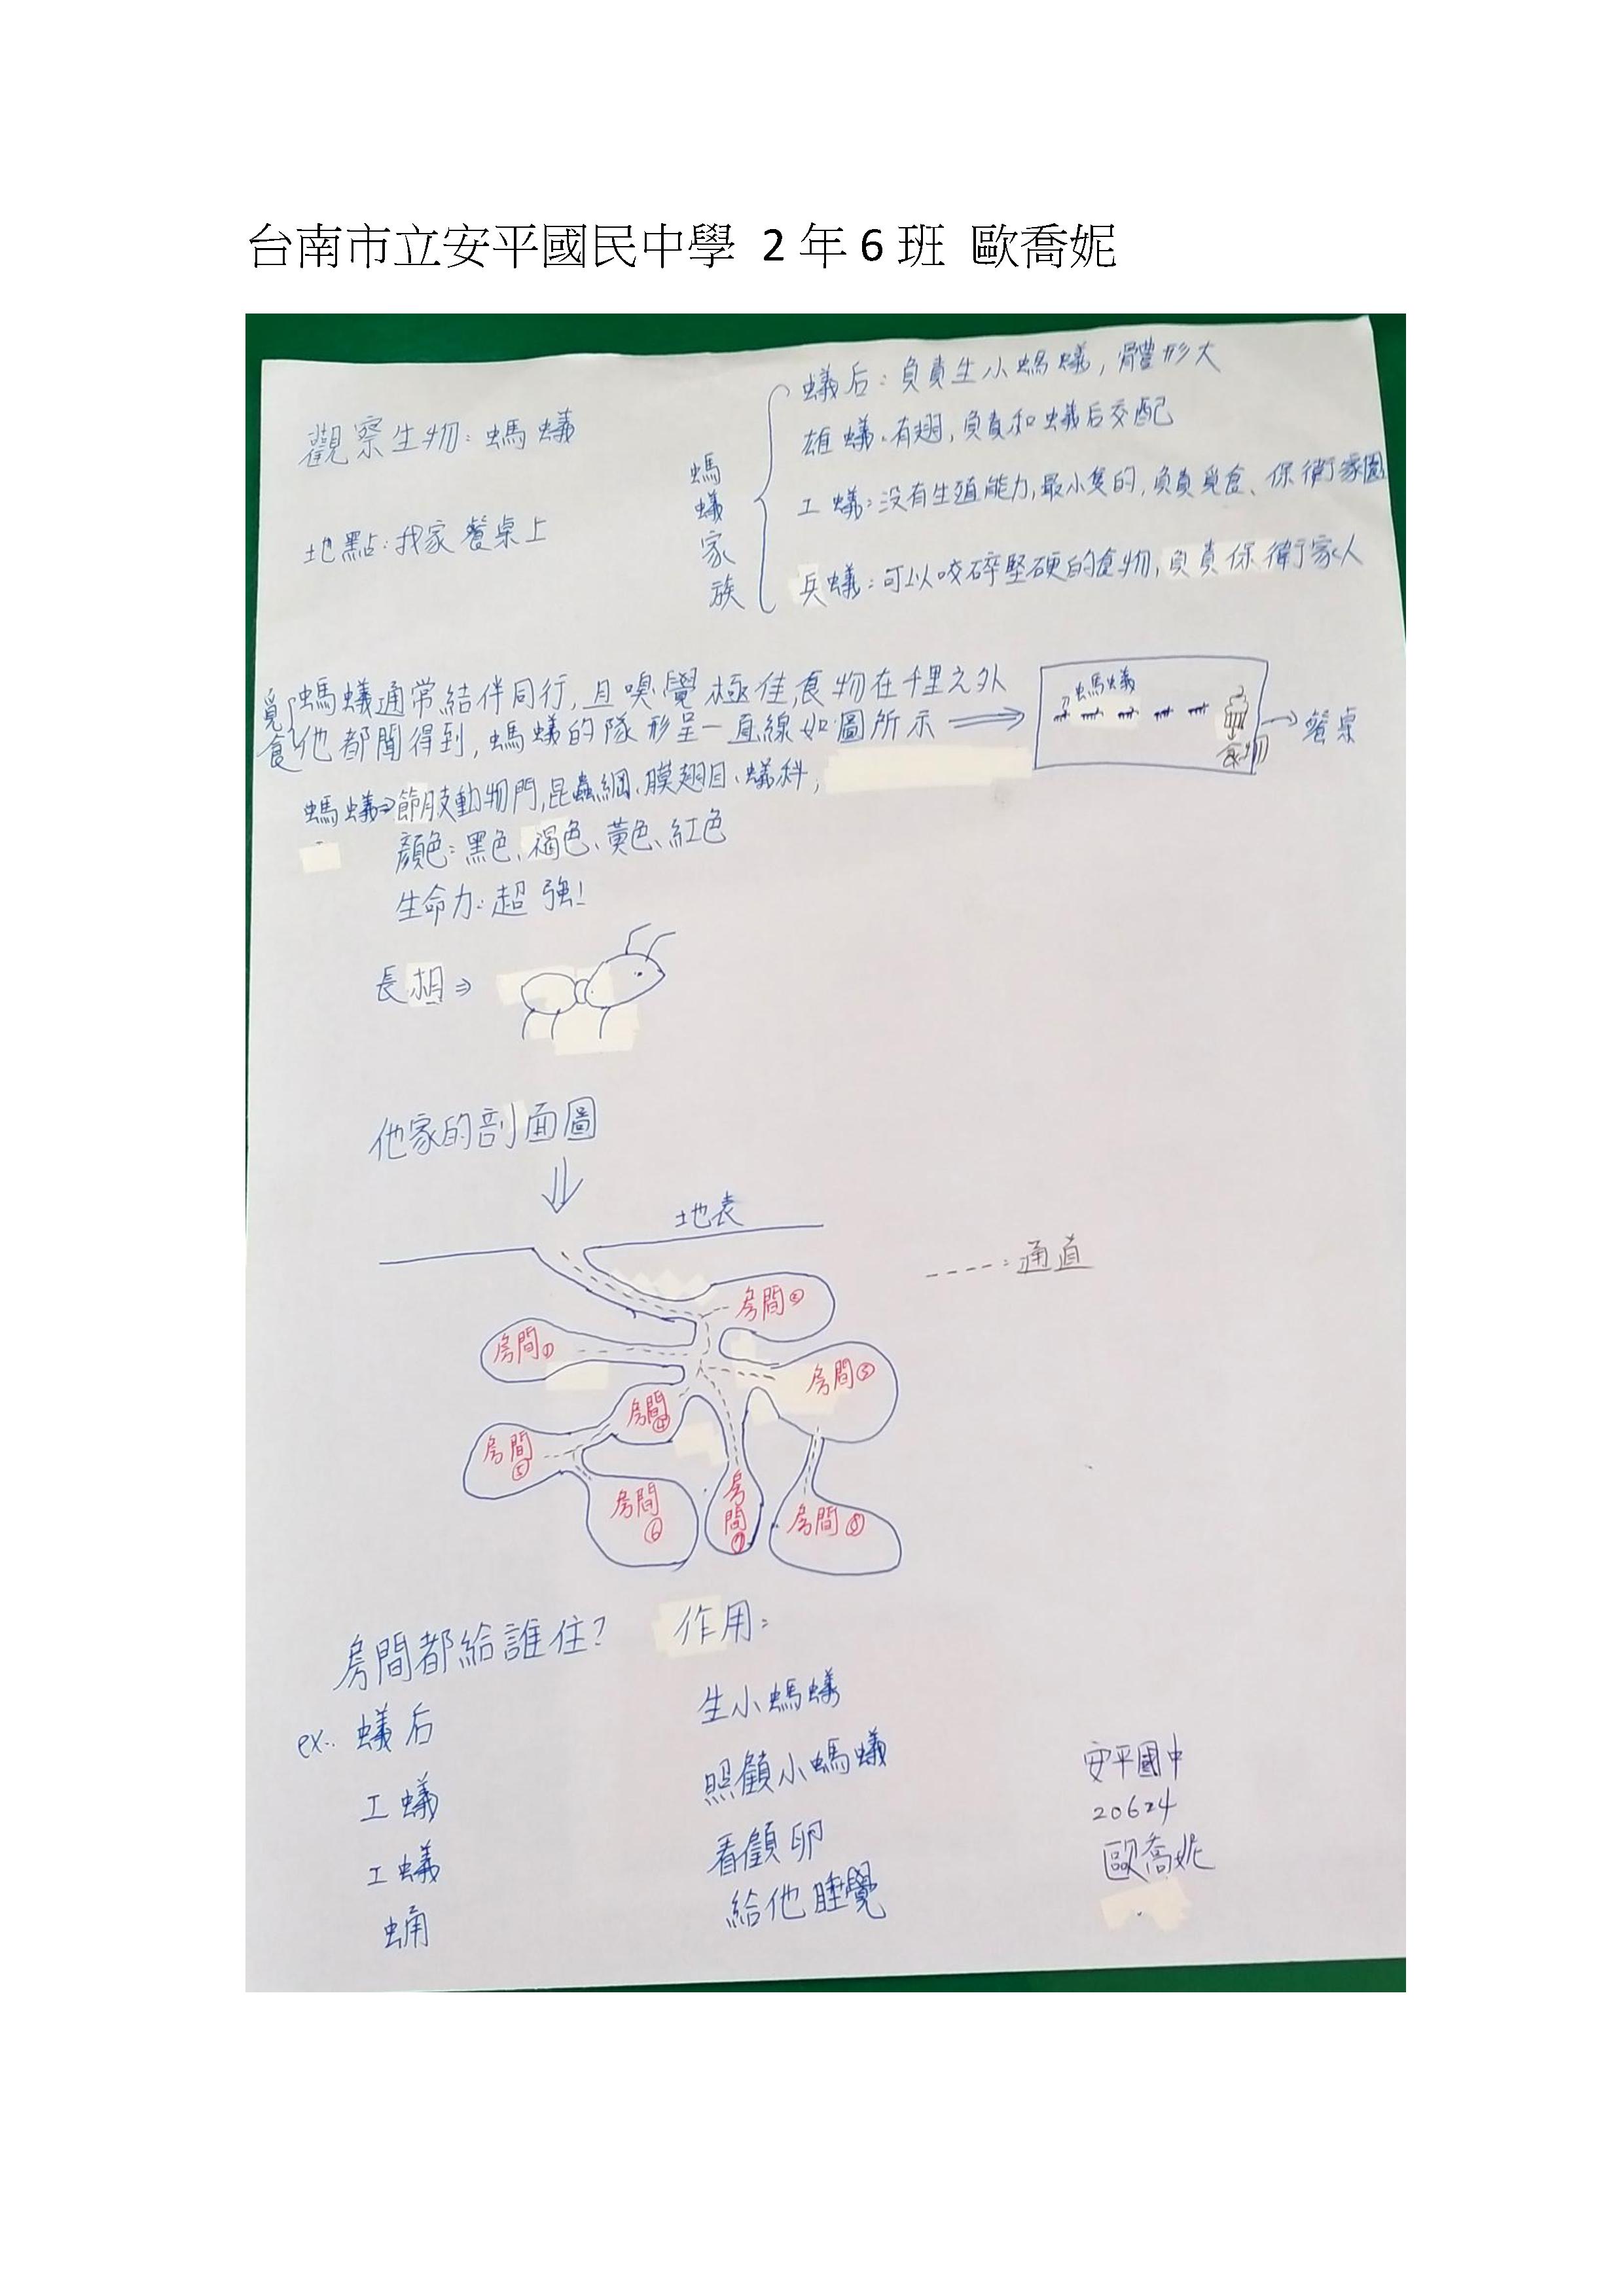 台南市立安平國民中學 2年6班 歐喬妮
觀察生物:螞蟻
地點:我家餐桌上
螞蟻家族
蟻后:負責生小螞蟻,體形大
雄蟻:有翅,負責和蟻后交配
工蟻:沒有生殖能力,最小隻的,負責覓食、保衛家園
兵蟻:可以咬碎堅硬的食物,負責保衛家人
覓食
螞蟻通常結伴同行,且嗅覺極佳,食物在千里之外
他都聞得到,螞蟻的隊形呈一直線如圖所示
螞蟻
食物
餐桌
螞蟻⇒節肢動物門,昆蟲綱、膜翅目、蟻科,
顏色:黑色、褐色、黃色、紅色
生命力:超強!
長相⇒
他家的剖面圖
地表
----:通道
房間②
房間①
房間③
房間④
房間⑤
房間⑥
房間⑦
房間⑧
房間都給誰住? 作用:
ex:蟻后 生小螞蟻
工蟻 照顧小螞蟻
工蟻 看顧卵
蛹 給他睡覺
安平國中
20624
歐喬妮